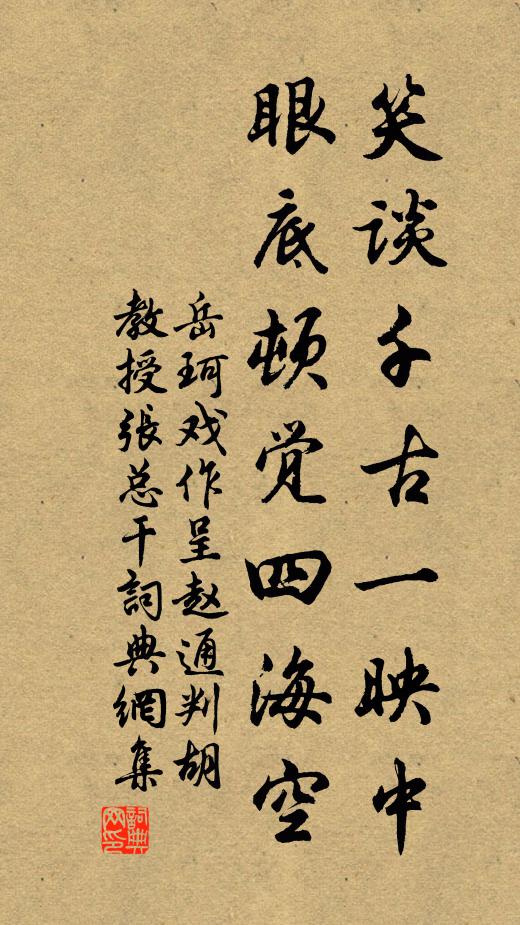 笑谈千古一映中
眼底顿觉四海空
岳珂戏作呈赵通判胡
教授張总干詞典網集
詞典
网印